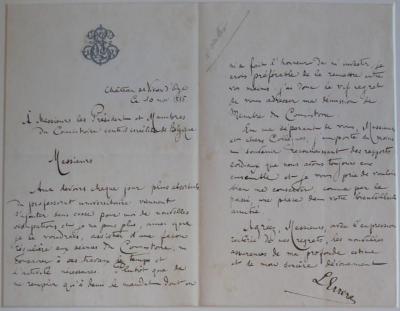 Château de Vivier d'Oye
le 10 nov. 1885
À Messieurs les Présidents et Membres
du Consistoire central israélite de Belgique
Messieurs
Aux devoirs chaque jour plus absorbants
du professorat universitaire viennent
s'ajouter sans cesse pour moi de nouvelles
occupations et je ne puis plus, aussi que
je le voudrais, assister d'une façon
régulière aux séances du Consistoire, ni
consacrer à ses travaux le temps et
l'activité nécessaires. Plutôt que de
ne remplir qu'à demi le mandat dont on
m'a fait l'honneur de m'investir, je
crois préférable de le remettre entre
vos mains; j'ai donc le vif regret
de vous adresser ma démission de
Membre du Consistoire
En me séparant de vous, Messieurs
et chers Collègues, j'emporte du moins
un souvenir reconnaissant des rapports
cordiaux que nous avons toujours eus
ensemble et je vous prie de vouloir
bien me conserver, comme par le
passé, une place dans votre bienveillante
amitié
Agréez, Messieurs, avec l'expression
réitérée de mes regrets, les nouvelles
assurances de ma profonde estime
et de mon sincère dévouement
L Errera